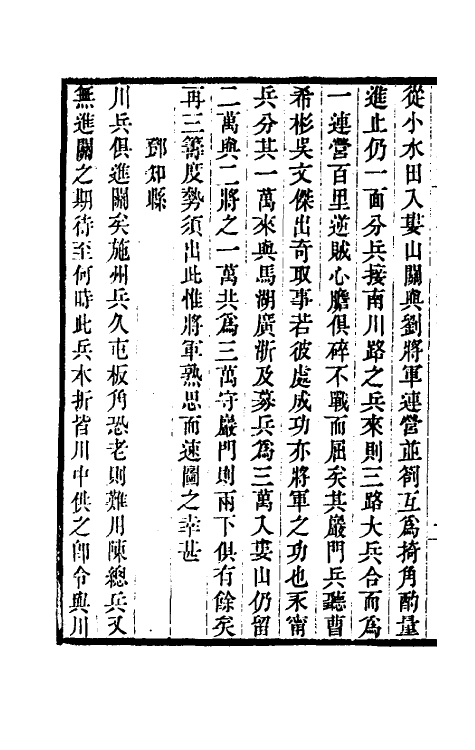 從小水田入婁山關與劉將軍連營並劄互為掎角酌量
進止仍一面分兵接南川路之兵來則三路大兵合而為
一連營百里逆賊心膽俱碎不戰而屈矣其嚴門兵聽曹
希彬吳文傑出奇取事若彼處成功亦將軍之功也永甯
兵分其一萬來與馬湖廣浙及募兵為三萬入婁山仍留
二萬與二將之一萬共為三萬守嚴門則兩下俱有餘矣
再三籌度勢須出此惟將軍熟思而速圖之幸甚
鄧知縣
川兵俱進關矣施州兵久屯板角恐老則難用陳總兵又
無進關之期待至何時此兵本折皆川中供之卽令與川